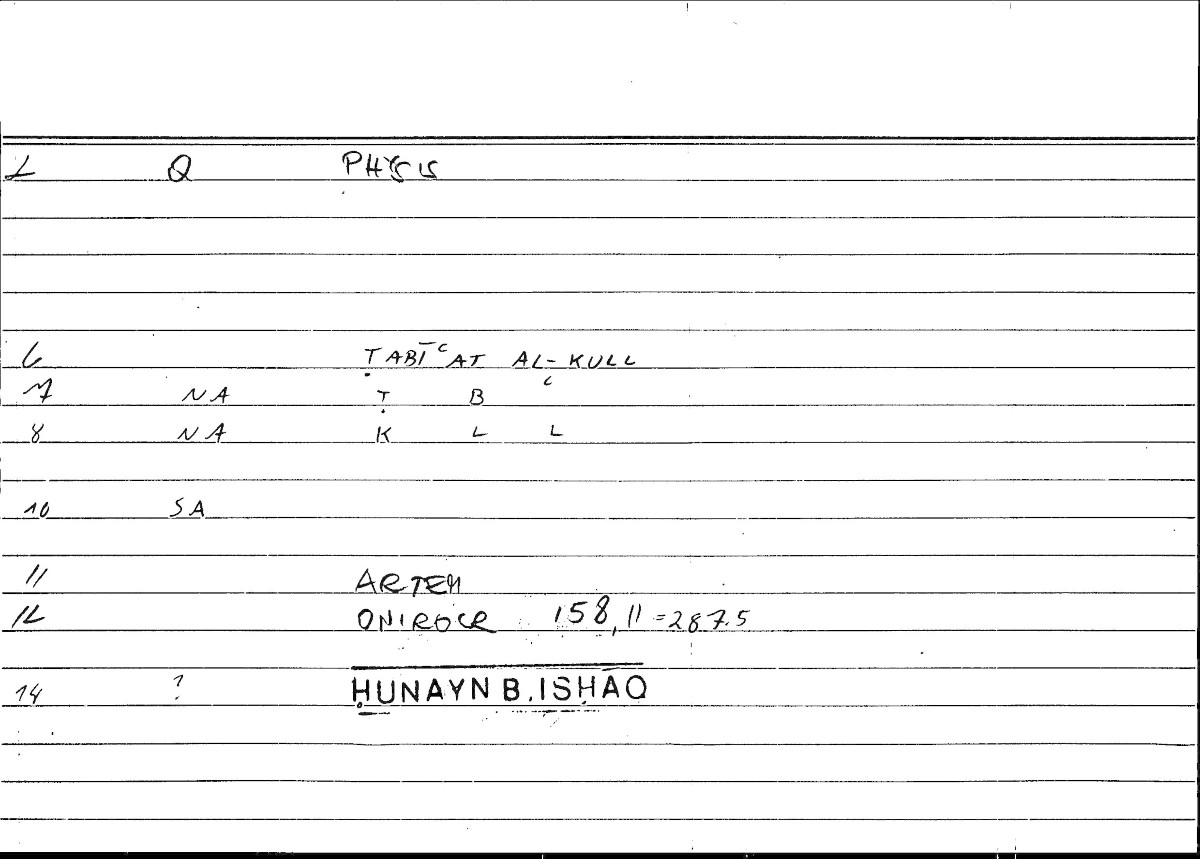 1 Q PHYSIS
6 ṬABĪʿAT AL-KULL
7 NA Ṭ B ʿ
8 NA K L L
10 SA
11 ARTEM
12 ONIROCR 158, 11 = 287.5
14 ? ḤUNAYN B. ISḤĀQ